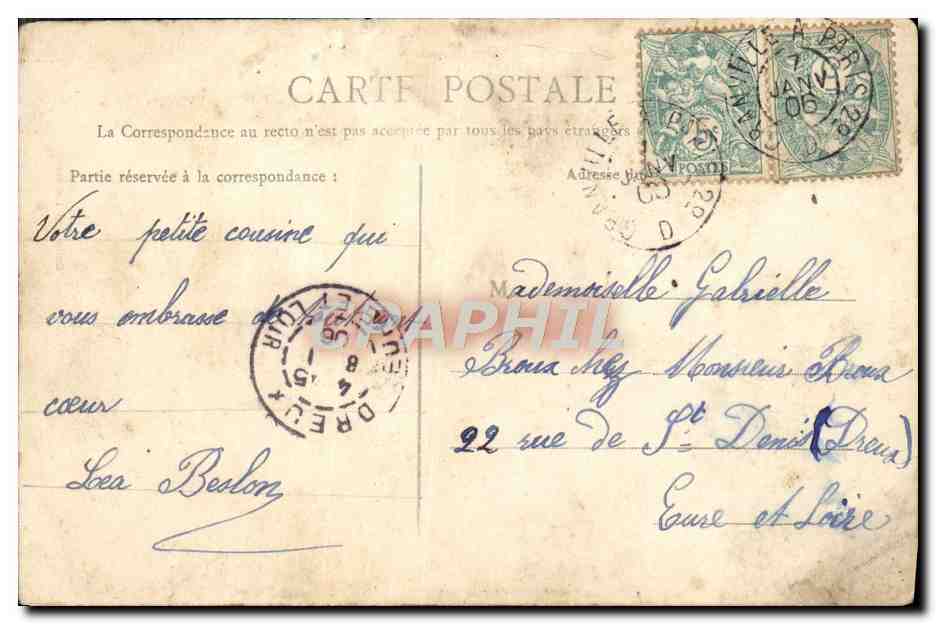 CARTE POSTALE
La Correspondance au recto n'est pas acceptée par tous les pays étrangers
Partie réservée à la correspondance :
Adresse
Votre petite cousine qui
vous embrasse de
cœur
Lea Beslon
Mademoiselle Gabrielle
Broux chez Monsieur Broux
22 rue de St Denis (Dreux)
Eure et Loire
GRANVILLE A PARIS 2º
7
JANV
06
D
POSTES
JANV
2º
D
DREUX
EURE ET LOIR
8
CPAPHIL